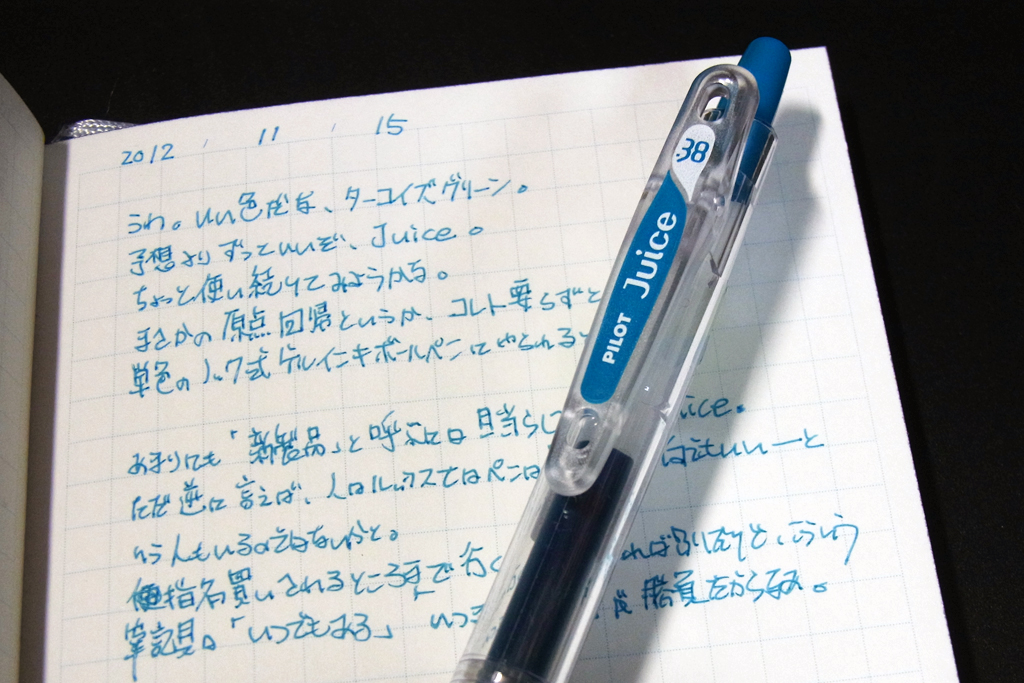 2012 . 11 . 15
うわ。いい色だな、ターコイズグリーン。
予想よりずっといいぞ、Juice。
ちょっと使い続けてみようかな。
まさかの原点回帰というか、コレト要らずと
単色のノック式ゲルインキボールペンにやられると
あまりにも「新製品」と呼ぶには目当らし uice。
ただ逆に言えば、人はルックスではペンは はどうでもいいーと
いう人もいるのではないかと。
指名買いされるところまで行く れば別だけど、こういう
筆記具。「いつでもある」 いつ 勝負だからなぁ。
.38
Juice
PILOT